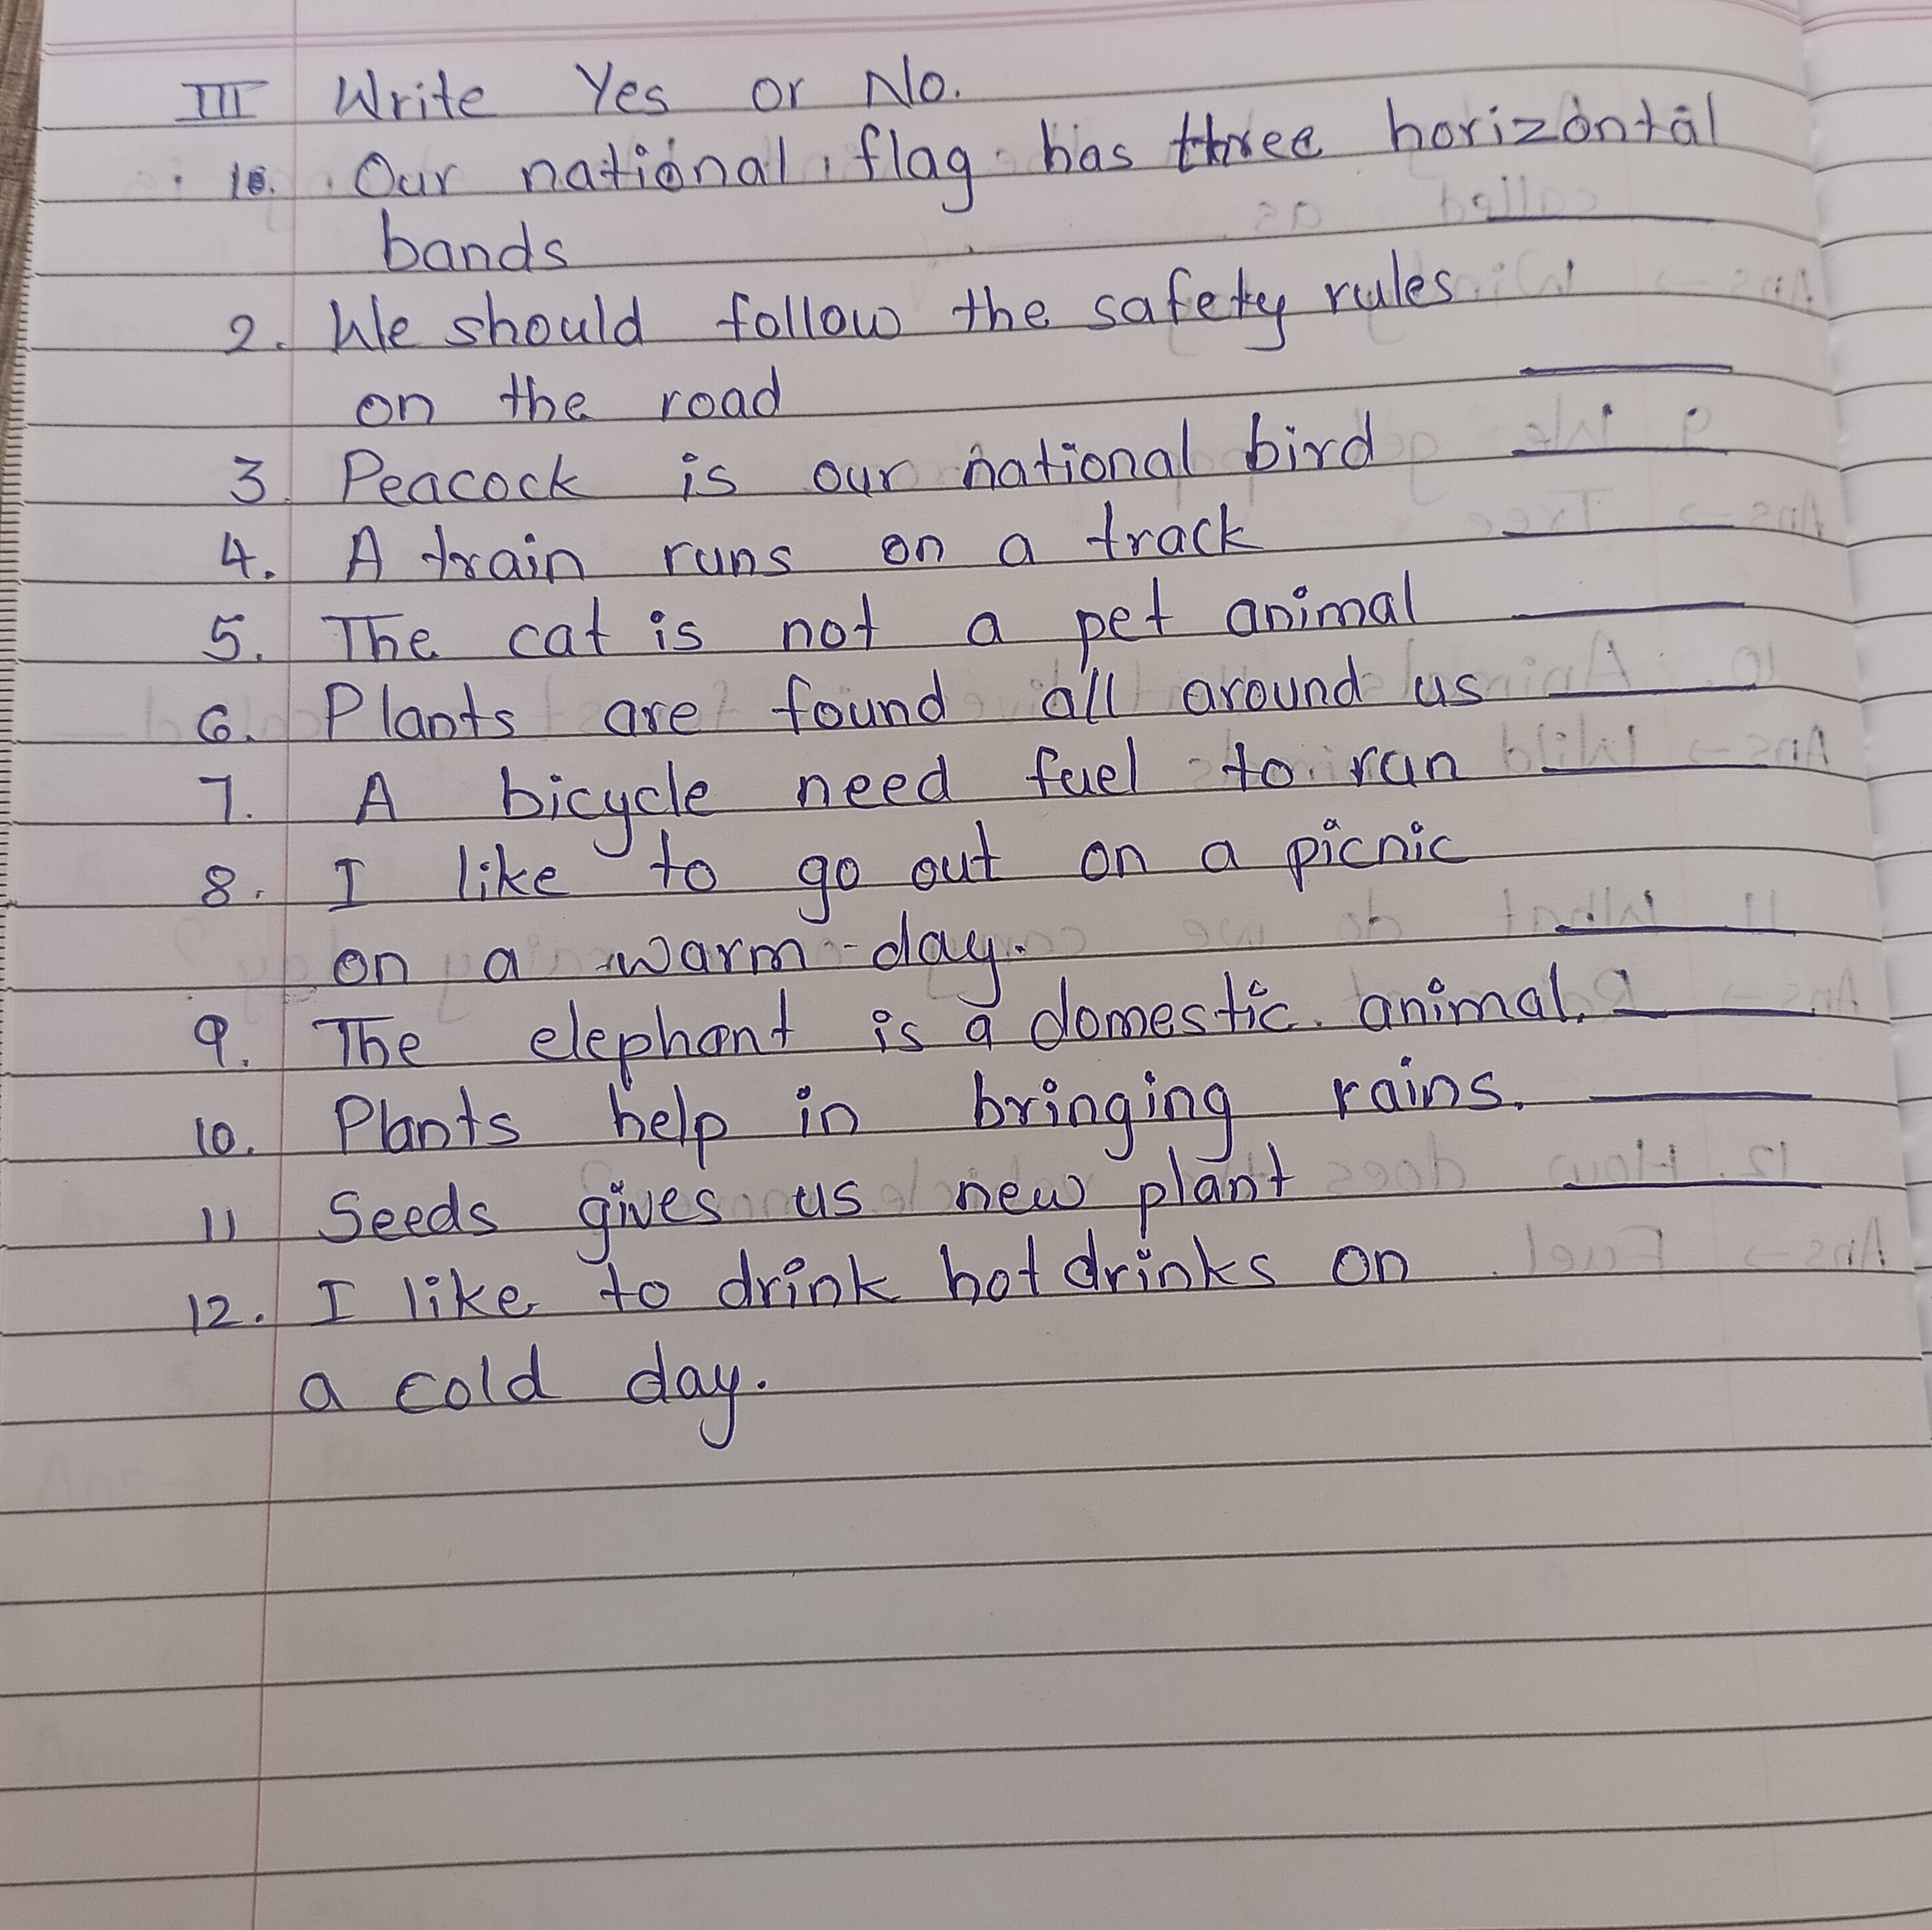 III Write Yes or No.
1. Our national flag has three horizontal
bands
2. We should follow the safety rules
on the road
3. Peacock is our national bird
4. A train runs on a track
5. The cat is not a pet animal
6. Plants are found all around us
7. A bicycle need fuel to run
8. I like to go out on a picnic
on a warm day.
9. The elephant is a domestic animal.
10. Plants help in bringing rains.
11 Seeds gives us new plant
12. I like to drink hot drinks on
a cold day.